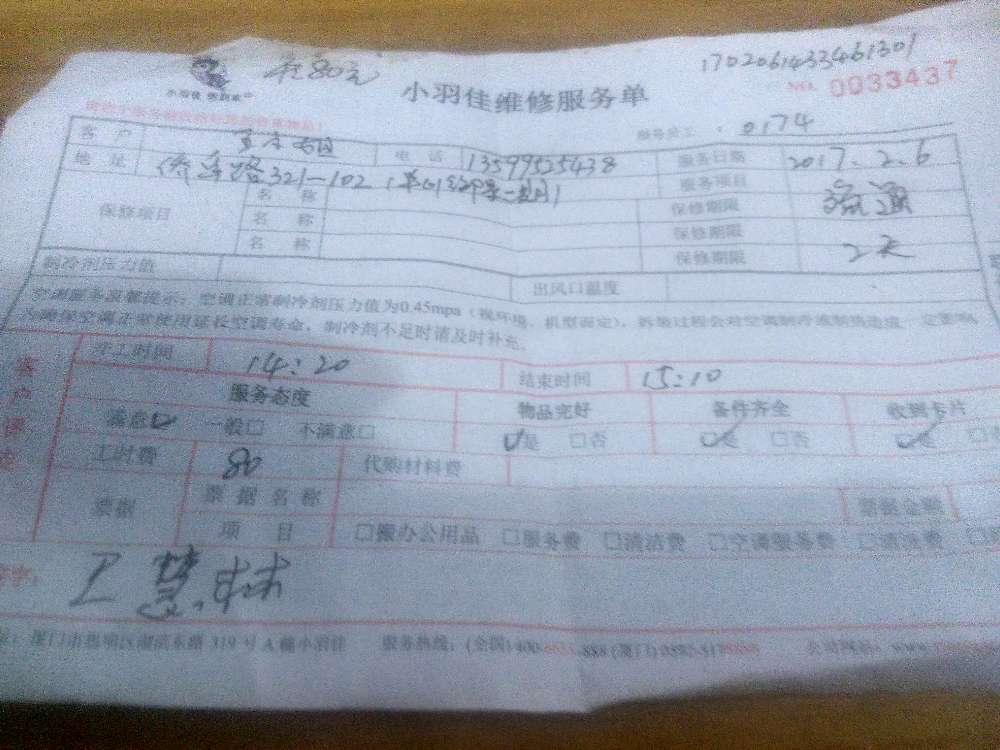 80元
小羽佳维修服务单
1702061433461301
NO. 0033437
0174
客户 电话 13599525438 服务日期 2017.2.6
地址 侨岳路321-102 服务项目 疏通
保修项目 名称 保修期限
名称 保修期限
名称 保修期限 2天
制冷剂压力值 出风口温度
空调服务温馨提示：空调正常制冷剂压力值为0.45mpa（视环境、机型而定），拆装过程会对空调制冷或制热造成一定影响，
为确保空调正常使用延长空调寿命，制冷剂不足时请及时补充。
开工时间 14:20 结束时间 15:10
服务态度 物品完好 备件齐全 收到卡片
满意☑ 一般□ 不满意□ ☑是 □否 ☑是 □否 ☑是
工时费 80 代购材料费
票据 票据名称 票据金额
项目 □搬办公用品 □服务费 □清洁费 □空调服务费 □清洗费
王慧林
319号A幢小羽佳 服务热线：(全国)400- -888 (厦门)0592-
公司网站：www.